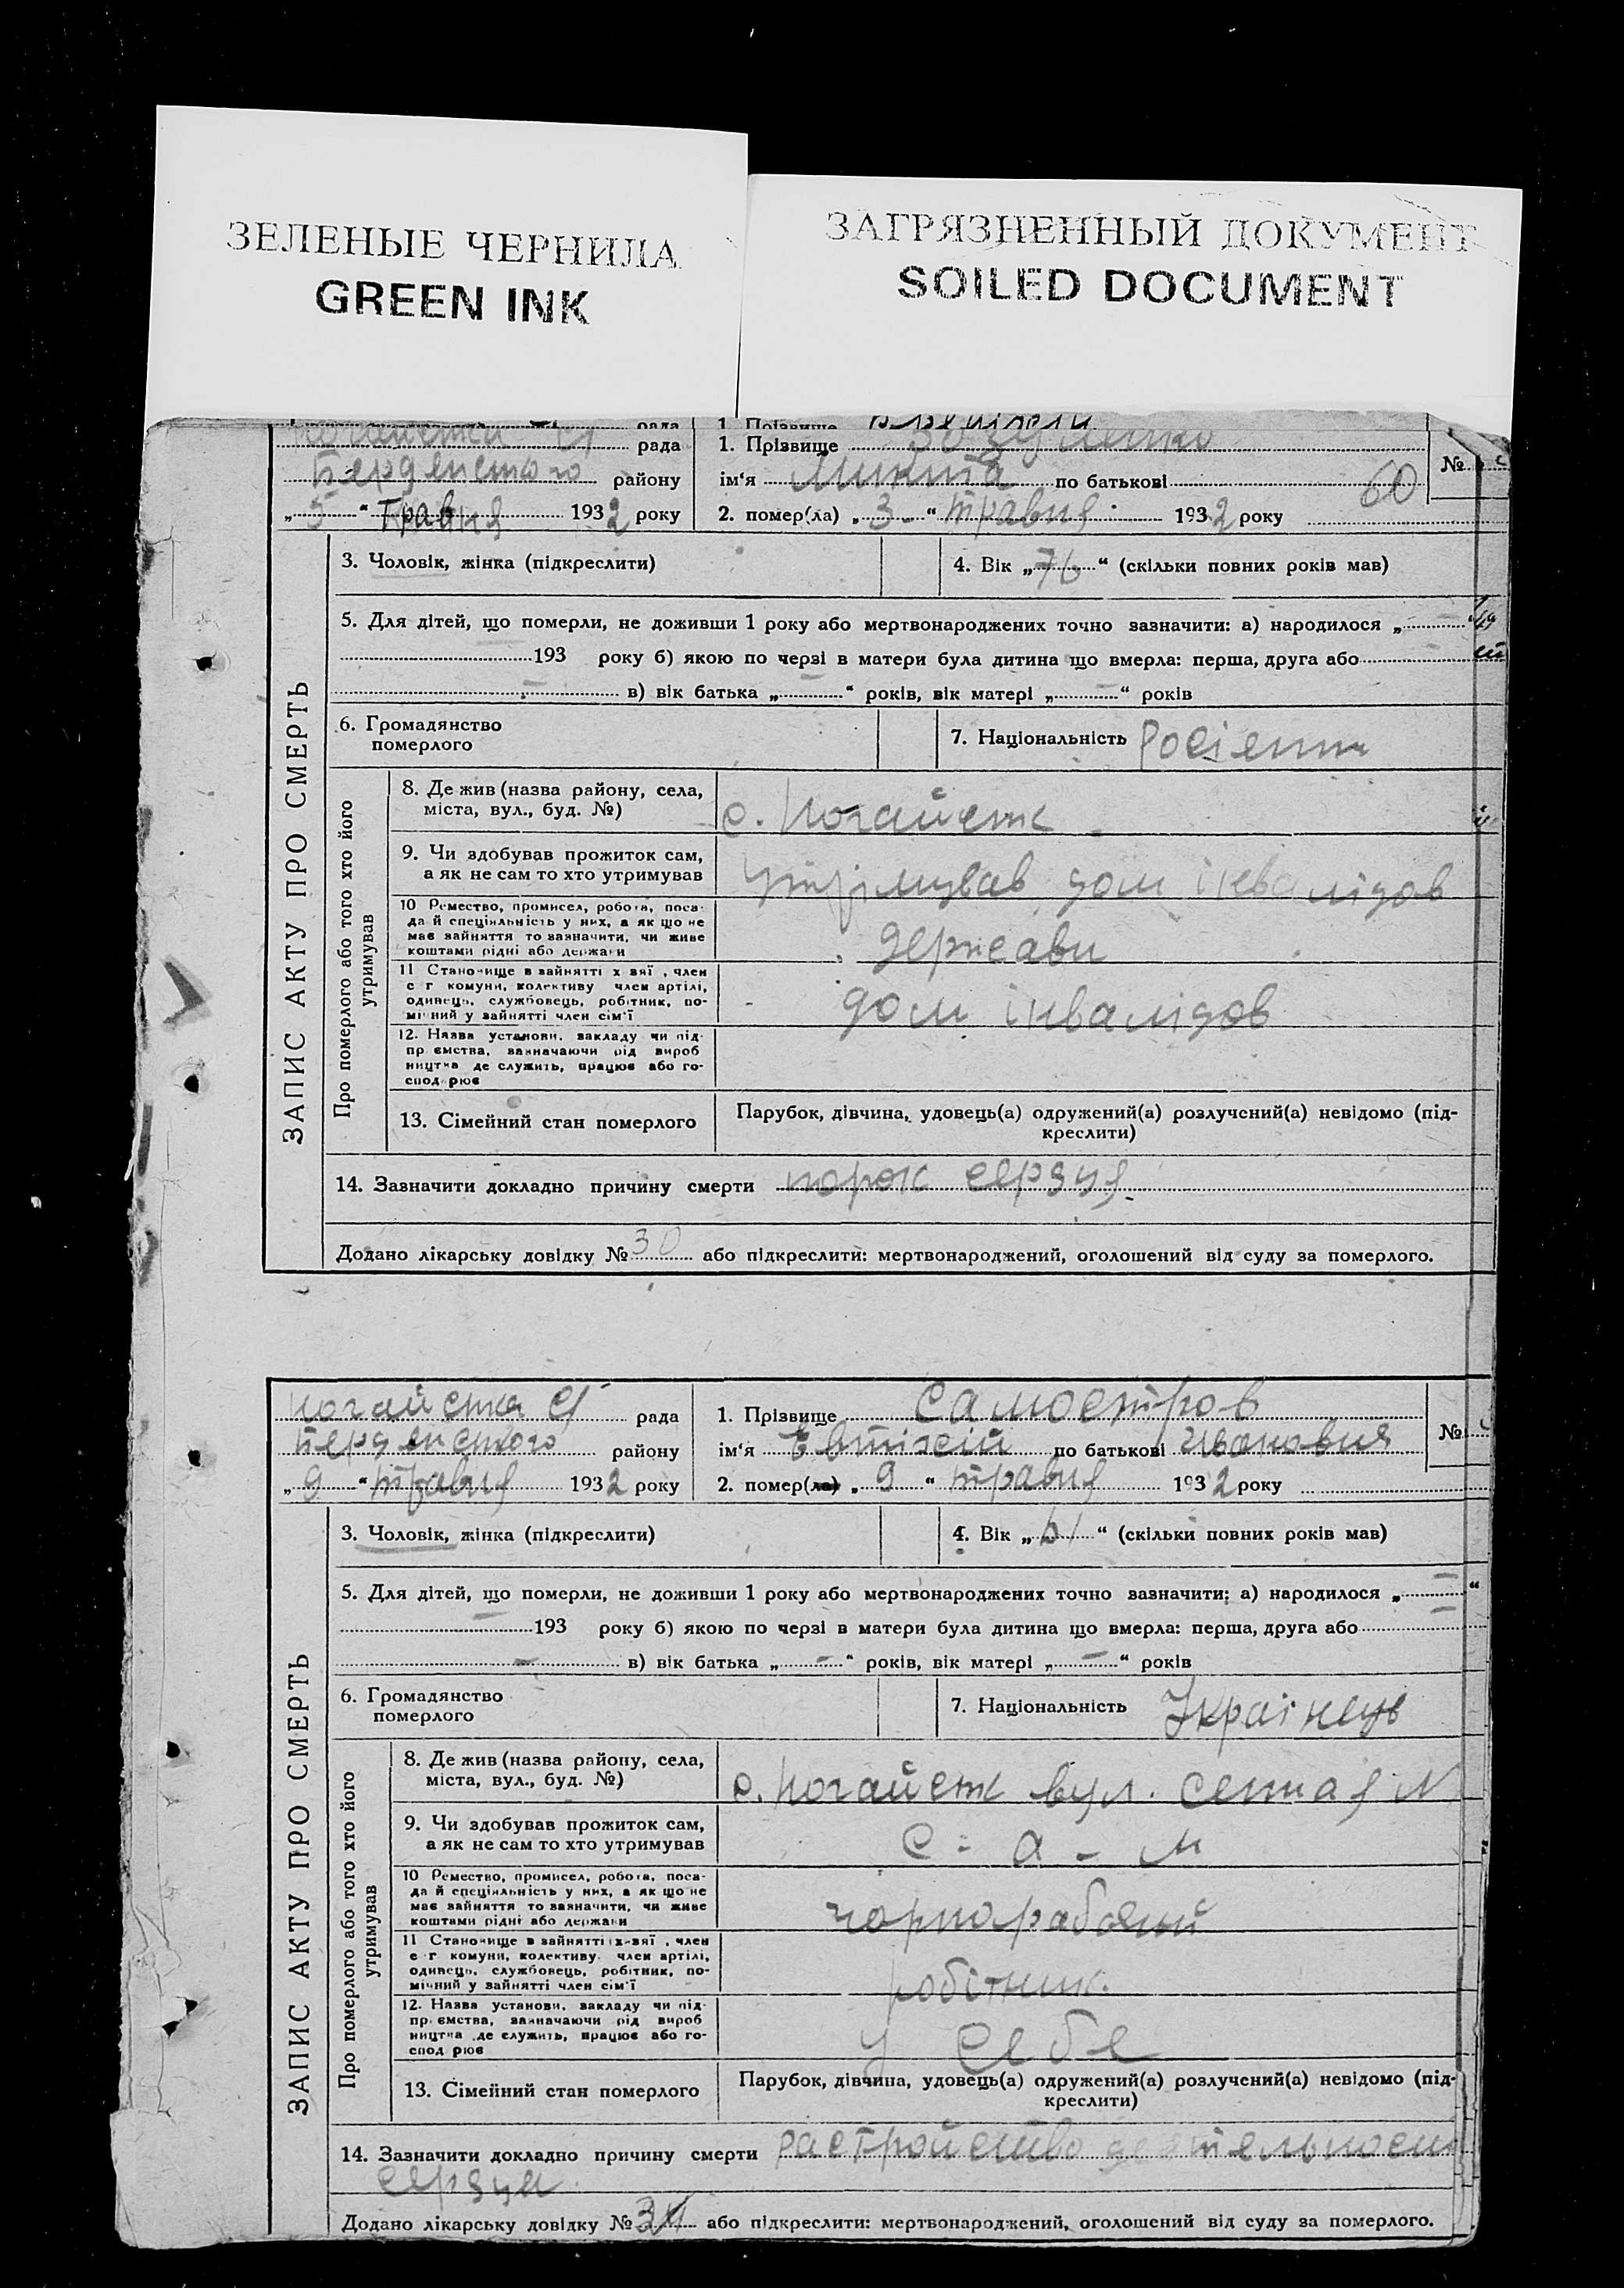 ЗЕЛЕНЫЕ ЧЕРНИЛА
GREEN INK
ЗАГРЯЗНЕННЫЙ ДОКУМЕНТ
SOILED DOCUMENT
рада 1. Прізвище
рада 1. Прізвище №
района району ім'я Микита по батькові 60
„5“ Травня 1932 року 2. помер(ла) „3“ травня 1932 року
3. Чоловік, жінка (підкреслити) 4. Вік „76“ (скільки повних років мав)
5. Для дітей, що померли, не доживши 1 року або мертвонароджених точно зазначити: а) народилося „
193 року б) якою по черзі в матери була дитина що вмерла: перша, друга або
в) вік батька „ “ років, вік матері „ “ років
6. Громадянство
померлого
7. Національність Росіянин
ЗАПИС АКТУ ПРО СМЕРТЬ
Про померлого або того хто його
утримував
8. Де жив (назва району, села,
міста, вул., буд. №)
с. Ногайськ
9. Чи здобував прожиток сам,
а як не сам то хто утримував
утрімував дом інвалідов
10 Ремество, промисел, робота, поса-
да й спеціяльність у них, а як що не
має зайняття то зазначити, чи живе
коштами рідні або держави
Держави
11 Становище в зайнятті хазяї, член
с г комуни, колективу член артілі,
одинець, службовець, робітник, по-
мічний у зайнятті член сім'ї
дом інвалідов
12. Назва установи, закладу чи під-
приємства, зазначаючи рід вироб
ництва де служить, працює або го-
сподарює
13. Сімейний стан померлого
Парубок, дівчина, удовець(а) одружений(а) розлучений(а) невідомо (під-
креслити)
14. Зазначити докладно причину смерти порок серзця
Додано лікарську довідку № 30 або підкреслити: мертвонароджений, оголошений від суду за померлого.
Ногайська с/ рада 1. Прізвище Самоєтров №
району ім'я Евтіхій по батькові Ивановия
„9“ травня 1932 року 2. помер(ла) „9“ травня 1932 року
3. Чоловік, жінка (підкреслити) 4. Вік „61“ (скільки повних років мав)
5. Для дітей, що померли, не доживши 1 року або мертвонароджених точно зазначити: а) народилося „ “
193 року б) якою по черзі в матери була дитина що вмерла: перша, друга або
в) вік батька „ “ років, вік матері „ “ років
6. Громадянство
померлого
7. Національність Українець
ЗАПИС АКТУ ПРО СМЕРТЬ
Про померлого або того хто його
утримував
8. Де жив (назва району, села,
міста, вул., буд. №)
с. Ногайськ вул. N
9. Чи здобував прожиток сам,
а як не сам то хто утримував
С - а - м
10 Ремество, промисел, робота, поса-
да й спеціяльність у них, а як що не
має зайняття то зазначити, чи живе
коштами рідні або держави
чорнорабочий
11 Становище в зайнятті хазяї, член
с г комуни, колективу член артілі,
одинець, службовець, робітник, по-
мічний у зайнятті член сім'ї
робітник
12. Назва установи, закладу чи під-
приємства, зазначаючи рід вироб
ництва де служить, працює або го-
сподарює
у себе
13. Сімейний стан померлого
Парубок, дівчина, удовець(а) одружений(а) розлучений(а) невідомо (під-
креслити)
14. Зазначити докладно причину смерти растройство деятельности
серзца
Додано лікарську довідку № або підкреслити: мертвонароджений, оголошений від суду за померлого.